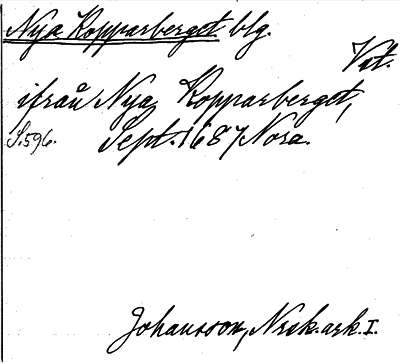 Nya Kopparberget blg.
Vst.
ifrån Nya Kopparberget,
S. 596. Sept. 1687 Nora.
Johansson, Nrik. ark. I.